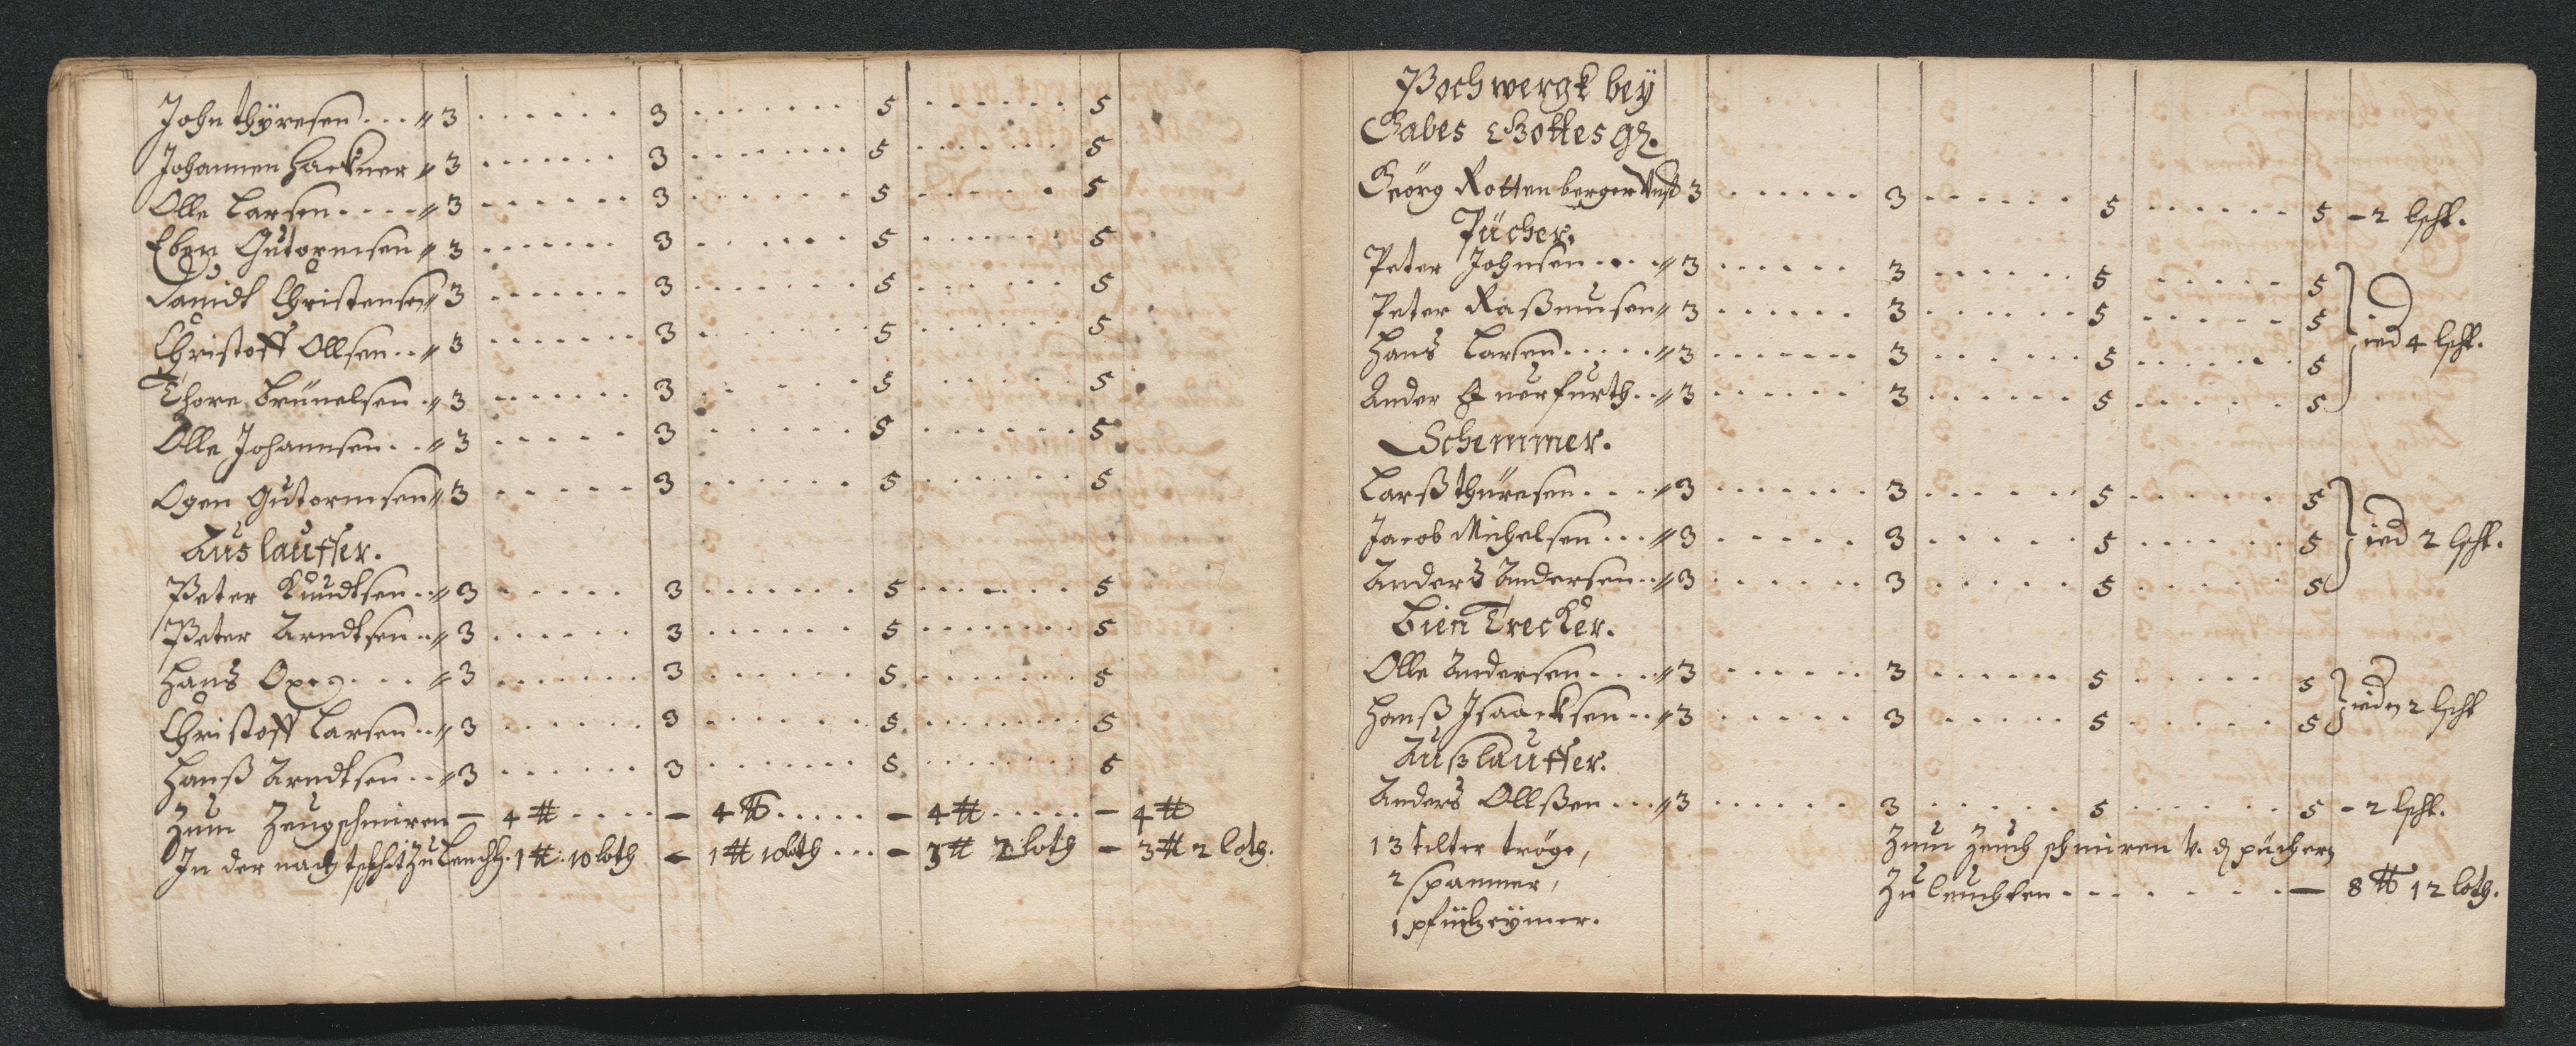 John thÿresen . . . 〃 3 . . . . . . 3 . . . . . . . 5 . . . . . . 5
Johannen Hackner 〃 3 . . . . . . . 3 . . . . . . . . 5 . . . . . . 5
Olle Larsen . . . . 〃 3 . . . . . . . 3 . . . . . . . 5 . . . . . . 5
Eben Gutormsen 〃 3 . . . . . . . 3 . . . . . . 5 . . . . . . 5
Dauidt Christensen 〃 3 . . . . . . . 3 . . . . . . . 5 . . . . . . 5
Christoff Ollsen . . 〃 3 . . . . . . . 3 . . . . . . . 5 . . . . . . 5
Thore Brünelsen . 〃 3 . . . . . . . 3 . . . . . . 5 . . . . . 5
Olle Johannsen . . 〃 3 . . . . . . 3 . . . . . . 5 . . . . . . 5
Ogen Gutormsen 〃 3 . . . . . . 3 . . . . . . 5 . . . . . . 5
Auslauffer.
Peter Knudtsen . . 〃 3 . . . . . . 3 . . . . . . . 5 . . . . . . 5
Peter Arndtsen . . 〃 3 . . . . . . 3 . . . . . . . 5 . . . . . . . . 5
Hans Oxe . . . 〃 3 . . . . . . . 3 . . . . . . 5 . . . . . . . 5
Christoff Larsen . . 〃 3 . . . . . . 3 . . . . . . 5 . . . . . . . . 5
Hanß Arndtsen . . 〃 3 . . . . . . 3 . . . . . . . 5 . . . . . . . 5
Zum Zeugschmiren – 4 ℔ . . . . – 4 ℔ . . . . . – 4 ℔ . . . . . – 4 ℔
In der nacht zu leucht. 1 ℔ 10 loth – 1 ℔ 10 loth . . . – 3 ℔ 2 loth – 3 ℔ 2 loth.
Pochwergk beÿ
Gabes Gottes
Geörg Rottenberger 3 . . . . . . 3 . . . . . . 5 . . . . . . 5 – 2 lscht.
Pücher.
Peter Johnsen . . . . 〃 3 . . . . . . 3 . . . . . . 5 . . . . . 5
Peter Raßmusen 〃 3 . . . . . . 3 . . . . . . 5 . . . . . 5
Hans Larsen . . . . . 〃 3 . . . . . . . 3 . . . . . . 5 . . . . . . 5 ied 4 lscht.
Ander Querfurth . . 〃 3 . . . . . . 3 . . . . . . 5 . . . . . 5
Schemmer.
Larß thüresen . . . . 〃 3 . . . . . . . 3 . . . . . . 5 . . . . . 5
Jacob Michelsen . . . 〃 3 . . . . . 3 . . . . . 5 . . . . . 5 ied 2 lscht.
Anders Andersen . . 〃 3 . . . . . . 3 . . . . . 5 . . . . . 5
Bien Trecker.
Olle Andersen . . . . 〃 3 . . . . . . 3 . . . . . . 5 . . . . . 5
Hanß Isaacksen . . 〃 3 . . . . . 3 . . . . . 5 . . . . . 5 ieden 2 lscht
Außlauffer.
Anders Ollßen . . . 〃 3 . . . . . . 3 . . . . . 5 . . . . . . 5 – 2 lscht.
13 tröge,
2 spanner,
1 pfützeÿmer.
Zum Zeuch schmiren v. d püchern
Zu leuchten . . . . . . . . – 8 ℔ 12 loth.